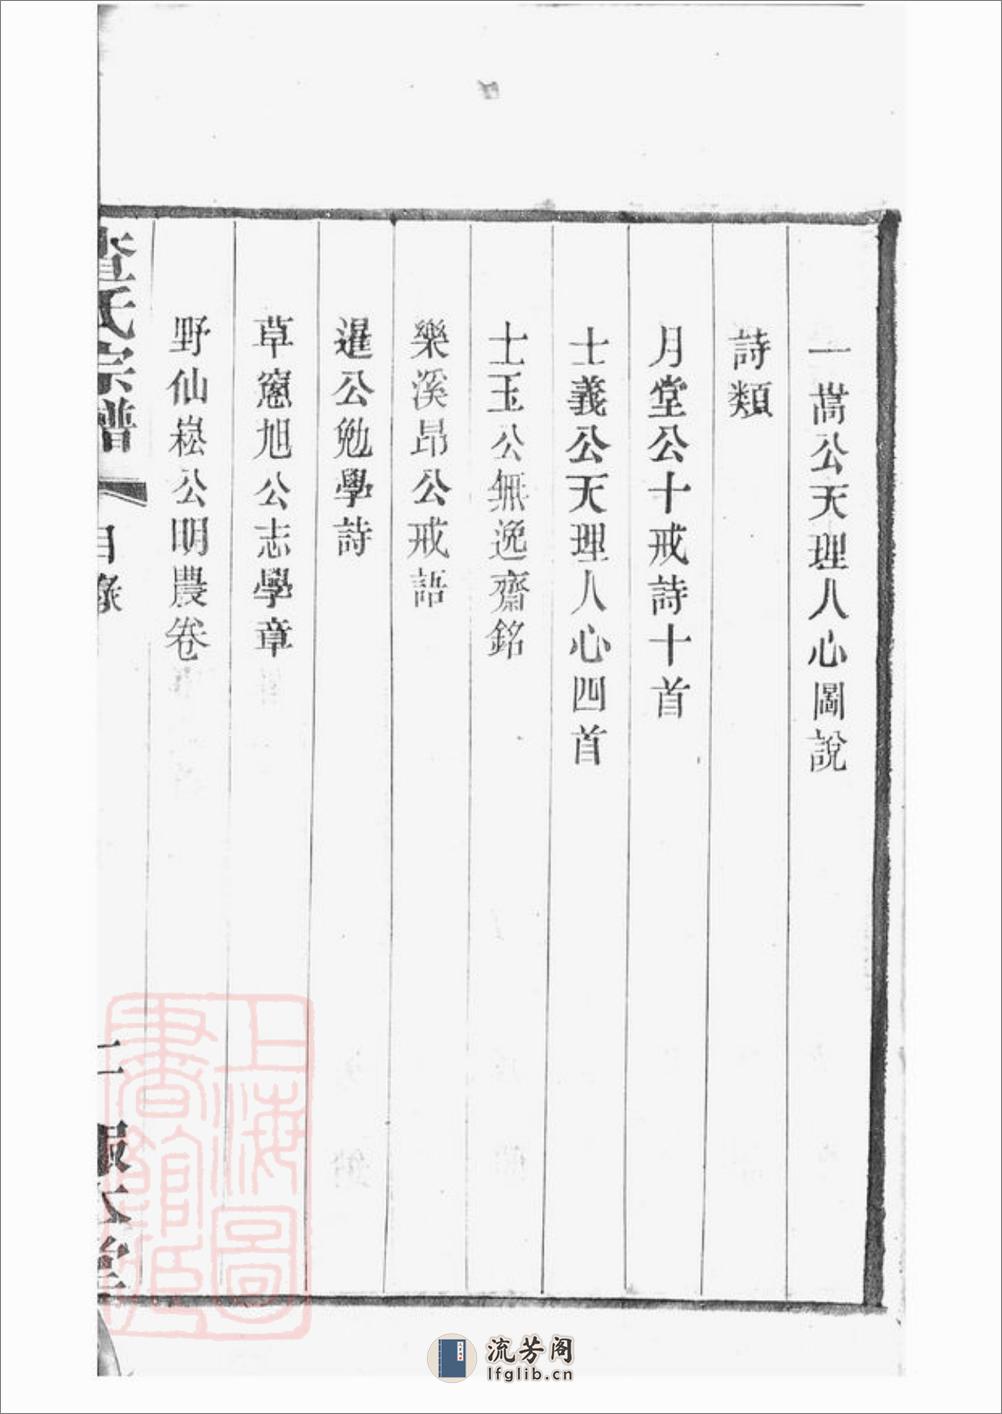 一萬公天理人心圖說
詩類
月堂公十戒詩十首
士義公天理人心四首
士玉公無逸齋銘
樂溪昂公戒語
暹公勉學詩
草窻旭公志學章
野仙崧公明農卷
查氏宗譜
目錄
二
報本堂
上海圖書館藏
流芳阁
lfglib.cn